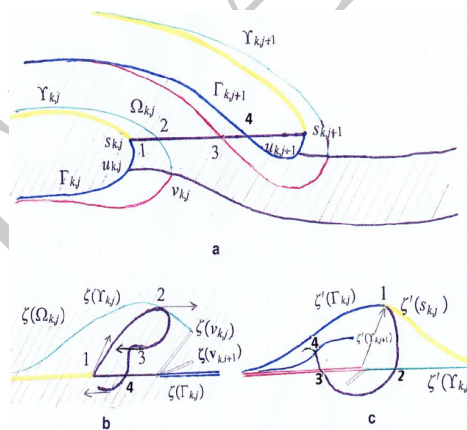 Υk,j+1
Γk,j+1
Υk,j
Ωk,j
2
4
sk,j
1
3
uk,j+1
sk,j+1
uk,j
Γk,j
vk,j
a
ζ(Ωk,j)
ζ(Υk,j)
2
ζ(vk,j)
1
3
ζ(vk,j+1)
4
ζ(Γk,j)
b
ζ′(Γk,j)
1
ζ′(sk,j)
4
ζ′(Υk,j+1)
3
2
ζ′(Υk,j
c